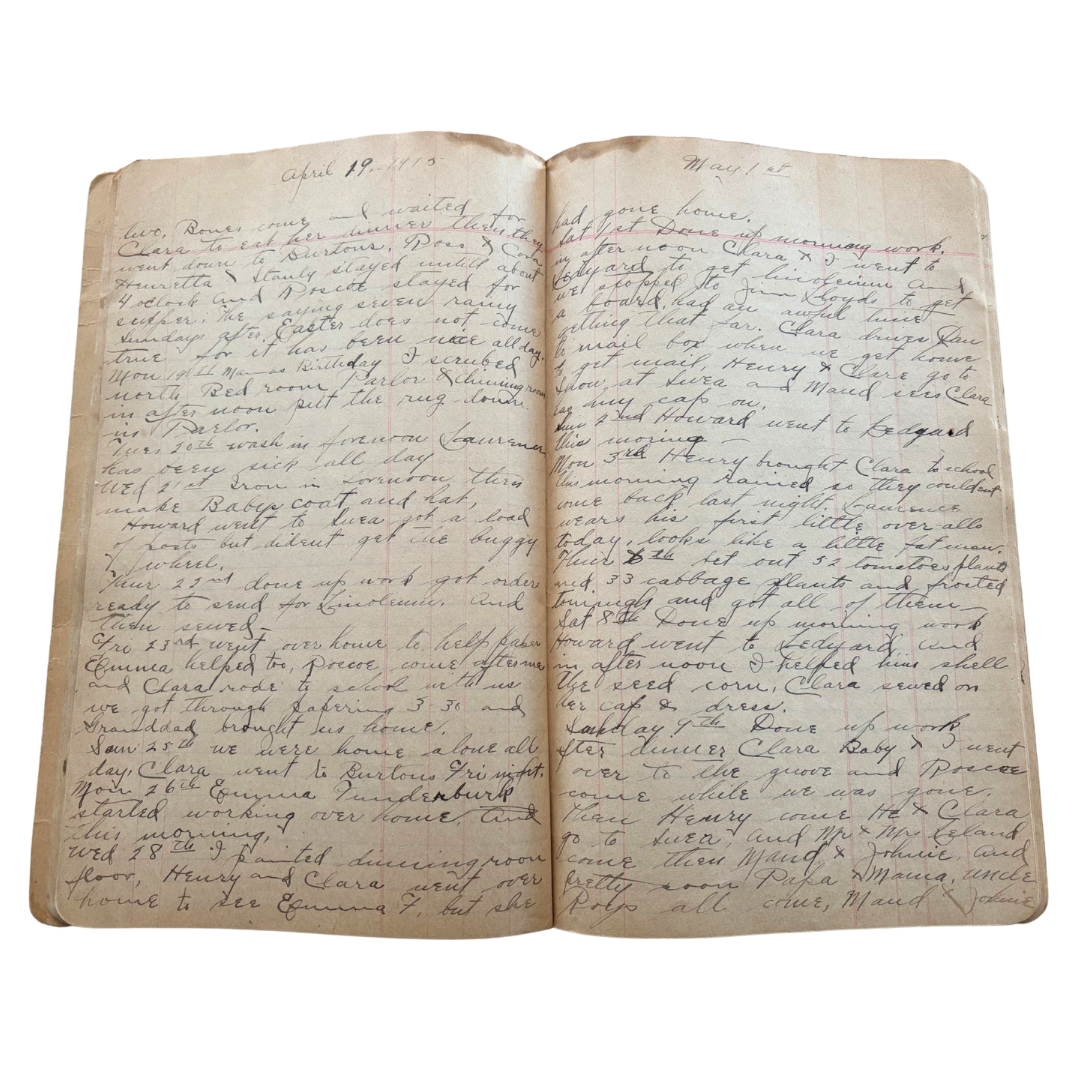 April 19, 1915
two, Bones come and waited for
Clara to eat her dinner then they
went down to Burtons, Ross & Cora
Henretta & Stanly stayed untill about
4 oclock and Roscoe stayed for
supper. The saying seven rainy
Sundays after Easter does not come
true for it has been nice all day.
Mon 19th Mamas Birthday I scrubed
north Bed room, Parlor & dinning room
in after noon put the rug down
in Parlor.
Tues 20th wash in forenoon Laurence
has been sick all day
Wed 21st Iron in forenoon, then
make Babys coat and hat,
Howard went to Swea got a load
of posts but dident get the buggy
wheel,
Thur 22nd done up work got order
ready to send for Linoleum. And
then sewed-
Fri 23rd went over home to help paper
Emma helped too, Roscoe come after me
and Clara rode to school with us
we got through papering 3-30 and
Granddad brought us home.
Sun 25th we were home alone all
day, Clara went to Burtons Fri night.
Mon 26th Emma Funderburk
started working over home, And
this morning,
Wed 28th I painted dinning room
floor, Henry and Clara went over
home to see Emma F, but she
May 1st
had gone home.
Sat 1st Done up morning work.
in after noon Clara & I went to
Ledyard to get linoleium and
we stopped to Jim Lloyds to get
a board, had an awful time
getting that far. Clara drives Dan
to mail box when we get home
to get mail, Henry & Clare go to
Show, at Swea and Maud sees Clara
has my cap on,
Sun 2nd Howard went to Ledyard
this moring -
Mon 3rd Henry brought Clara to school
this morning rained so they couldent
come back last night. Laurence
wears his first little over alls
today, looks like a little fat man.
Thur 6th Set out 52 tomatoes plants
and 33 cabbage plants and frosted
toningh and got all of them-
Sat 8th Done up morning work
Howard went to Ledyard and
in after noon I helped him shell
the seed corn, Clara sewed on
her cap & dress.
Sunday 9th Done up work
after dinner Clara Baby & I went
over to the grove and Roscoe
come while we was gone,
Then Henry come He & Clara
go to Swea, and Mr & Mrs Leland
come then Maud & Johnie, and
pretty soon Papa & Mama, uncle
Roys all come, Maud & Johnie